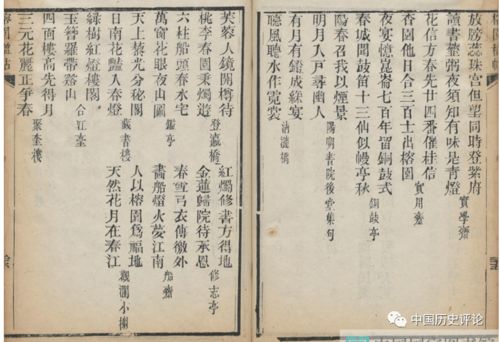 放牓蕊珠宮但望同時登紫府
讀書虀粥夜須知有味是青燈
實學齋
花信方春先廿四番催桂信
杏園他日合三百士出榕園
實用齋
夜宴憶崑崙七百年留銅鼓式
春城聞鼓笛十三仙似幔亭秋
銅鼓亭
陽春召我以煙景
明月入戶尋幽人
書院後堂集句
有月有燈成綵宴
聽風聽水作霓裳
芙蓉人鏡開樽待
桃李春園秉燭遊
登瀛橋
六柱船頭春水宅
萬窗花眼夜山圖
鑑亭
天上藜光分秘閣
日南花豔入春燈
藏書樓
綠樹紅燈樓閣
玉簪羅帶山
合江臺
四面樓高先得月
三元花麗正爭春
聚奎樓
紅燭修書方得地
金蓮歸院待承恩
修志亭
春雪弓衣傳徼外
畫船燈火夢江南
船齋
人以榕園爲福地
天然花月在春江
觀瀾小榭
中国历史评论